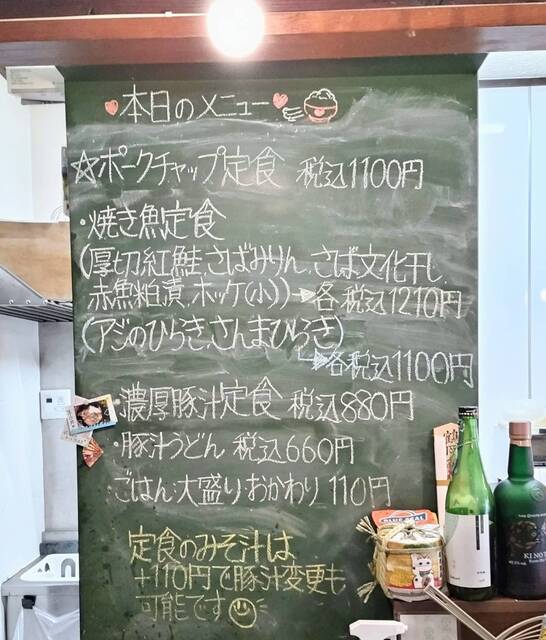 本日のメニュー
☆ポークチャップ定食 税込1100円
・焼き魚定食
(厚切紅鮭、さばみりん、さば文化干し、
赤魚粕漬、ホッケ(小))→各税込1210円
(アジのひらき、さんまひらき)
→各税込1100円
・濃厚豚汁定食 税込880円
・豚汁うどん 税込660円
ごはん大盛り・おかわり 110円
定食のみそ汁は
+110円で豚汁変更も
可能です
BLUE SEAL
KI NO